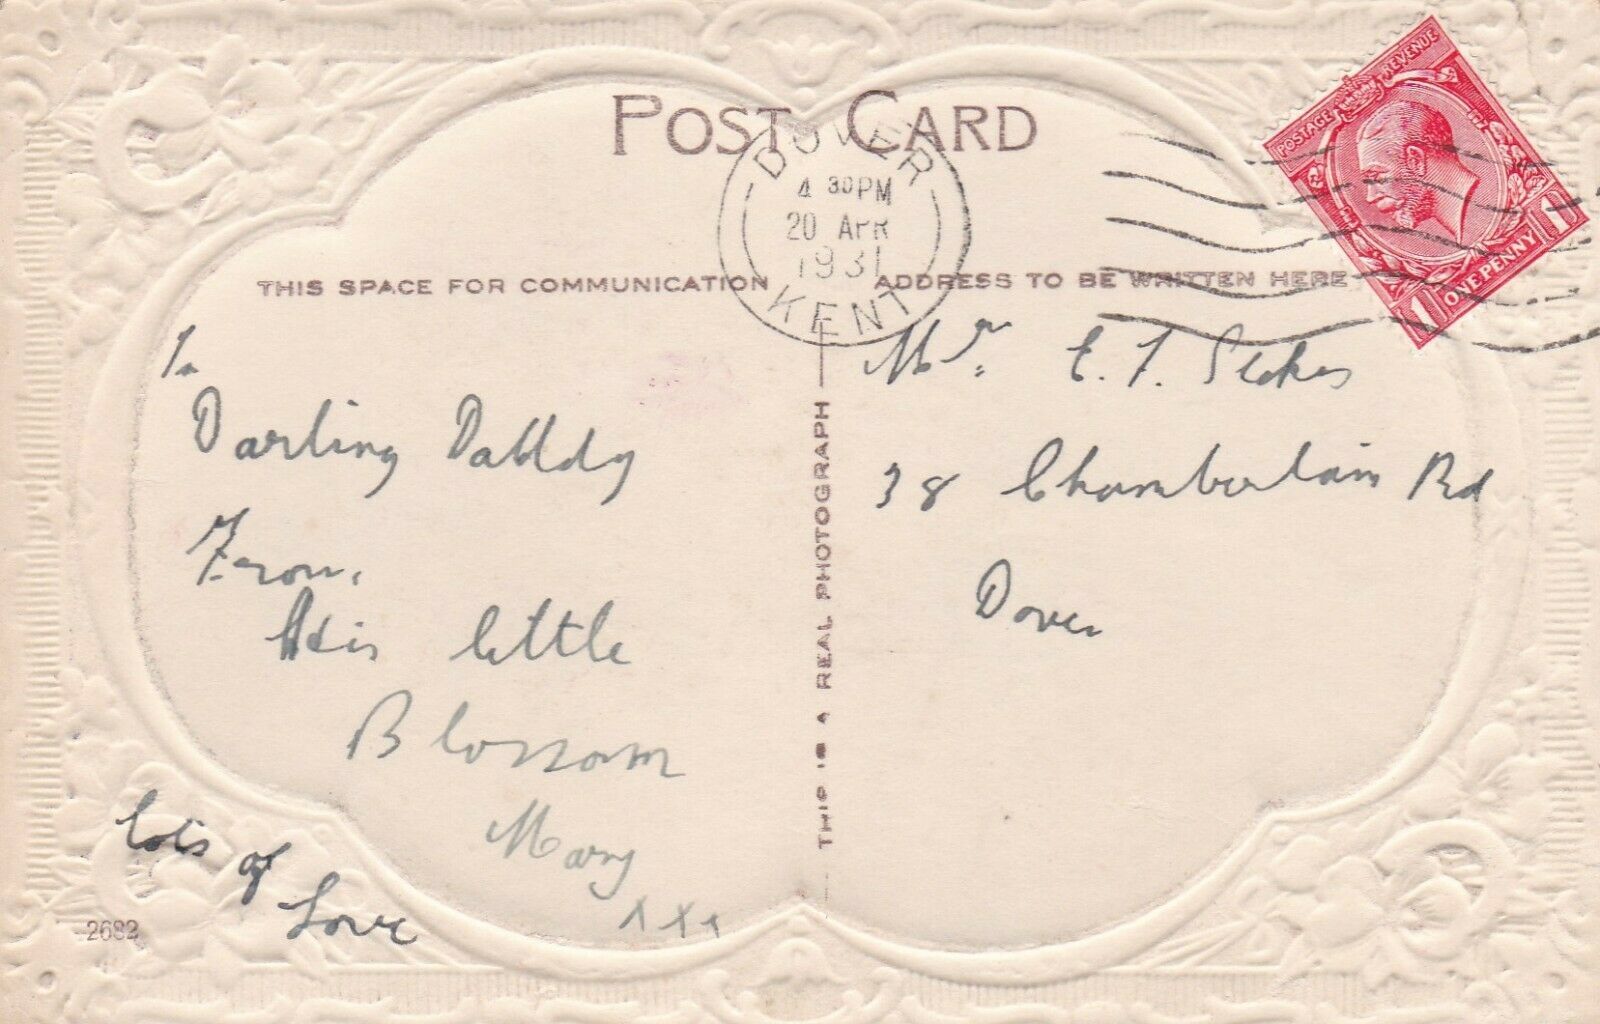 POST CARD
DOVER
4 30 PM
20 APR
1931
KENT
POSTAGE REVENUE
1 ONE PENNY 1
THIS SPACE FOR COMMUNICATION
ADDRESS TO BE WRITTEN HERE
To
Darling Daddy
From,
His little
Blossom
Mary
xxx
lots
of
Love
THIS IS A REAL PHOTOGRAPH
Mr. E. F. Stokes
38 Chamberlain Rd
Dover
2682